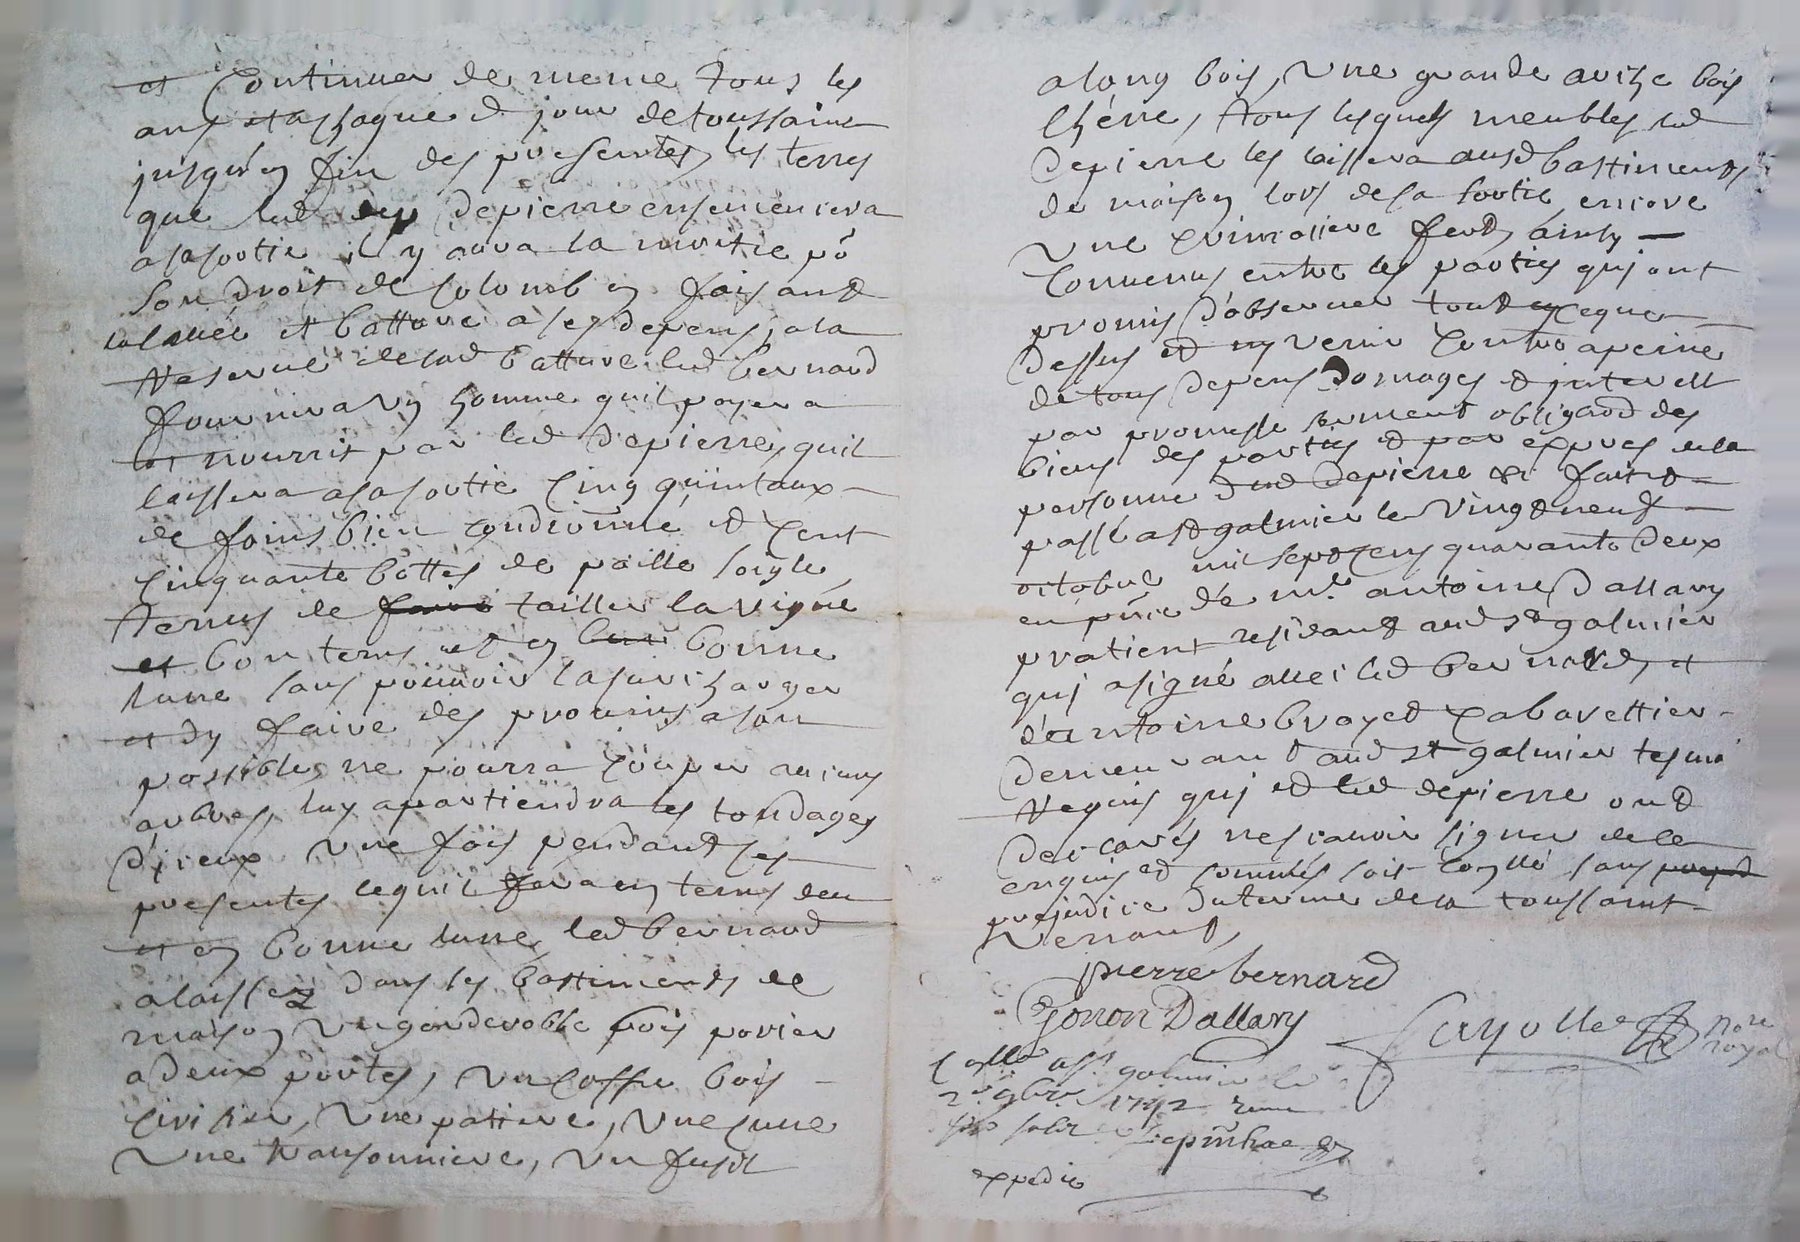 et Continuer de meme tous les
ans et a chaque d jour de toussaint
jusqu'en fin des presentes, les terres
que led depierre ensemencera
a sa sortie il y aura la moitie po
son droit de colonb en faisant
la levée et batture a ses depens, a la
reserve de lad batture led bernard
fournira un homme quil payera
et nourrit par led depierre, quil
laissera a sa sortie cinq quintaux
de foins bien conditionné et cent
cinquante bottes de paille soigle,
tenus de tailler la vigne
et bon tems et en bonne
lune sans pouvoir la surcharger
et dy faire des provins a son
possible, ne pourra couper aucuns
arbres, luy apartiendra les tondages
d'iceux une fois pendant ces
presentes lequil fera en tems deu
et en bonne lune, led bernard
a laissez dans les bastiments de
maison un garderobbe bois porier
a deux portes, un coffre bois
cirisier, une patiere, une
une, un fusil
a long bois, une grande arche bois
chéne, tous lesquels meubles led
depierre les laissera ausd bastiments
de maison lors de sa sortie encore
une ainsy
convenus entre les parties qui ont
promis d'observer tout ce que
dessus et ny venir contre a peine
de tous depens domages et interest
par promesse serment obligaod des
biens des parties et par expres de la
personne dud depierre &c fait et
passé a st galmier le vingt neuf
octobre mil sept cens quarante deux
en pñce de me. antoine Dallary
pratient residant aud st galmier
qui a signé avec led bernard, et
d'antoine broyet cabarettier
demeurant aud st galmier tesmoi
requis qui et led depierre ont
declarés ne scavoir signer de ce
enquis et sommés soit coñllé sans
prejudice du terme de la toussaint
venant,
pierre bernard
Dallary
Cayolle Nore
royal
Collé a st galmier le
2e 9bre 1742
expedié